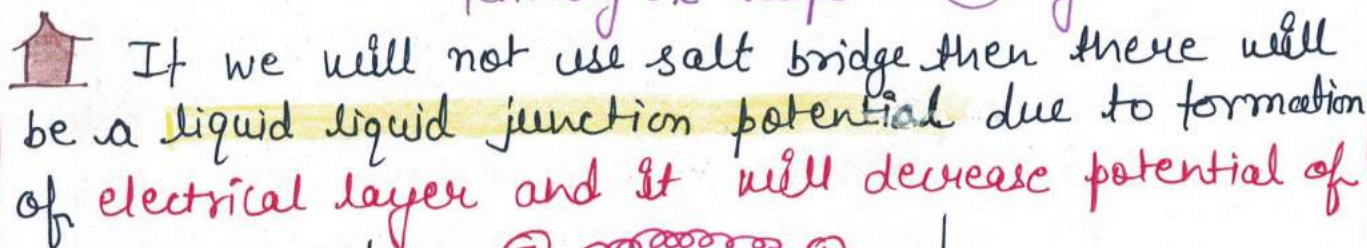 If we will not use salt bridge then there will
be a liquid liquid junction potential due to formation
of electrical layer and it will decrease potential of